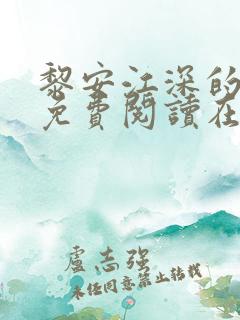 黎安江深的
免費閱讀在
盧志強
未經同意禁止轉載